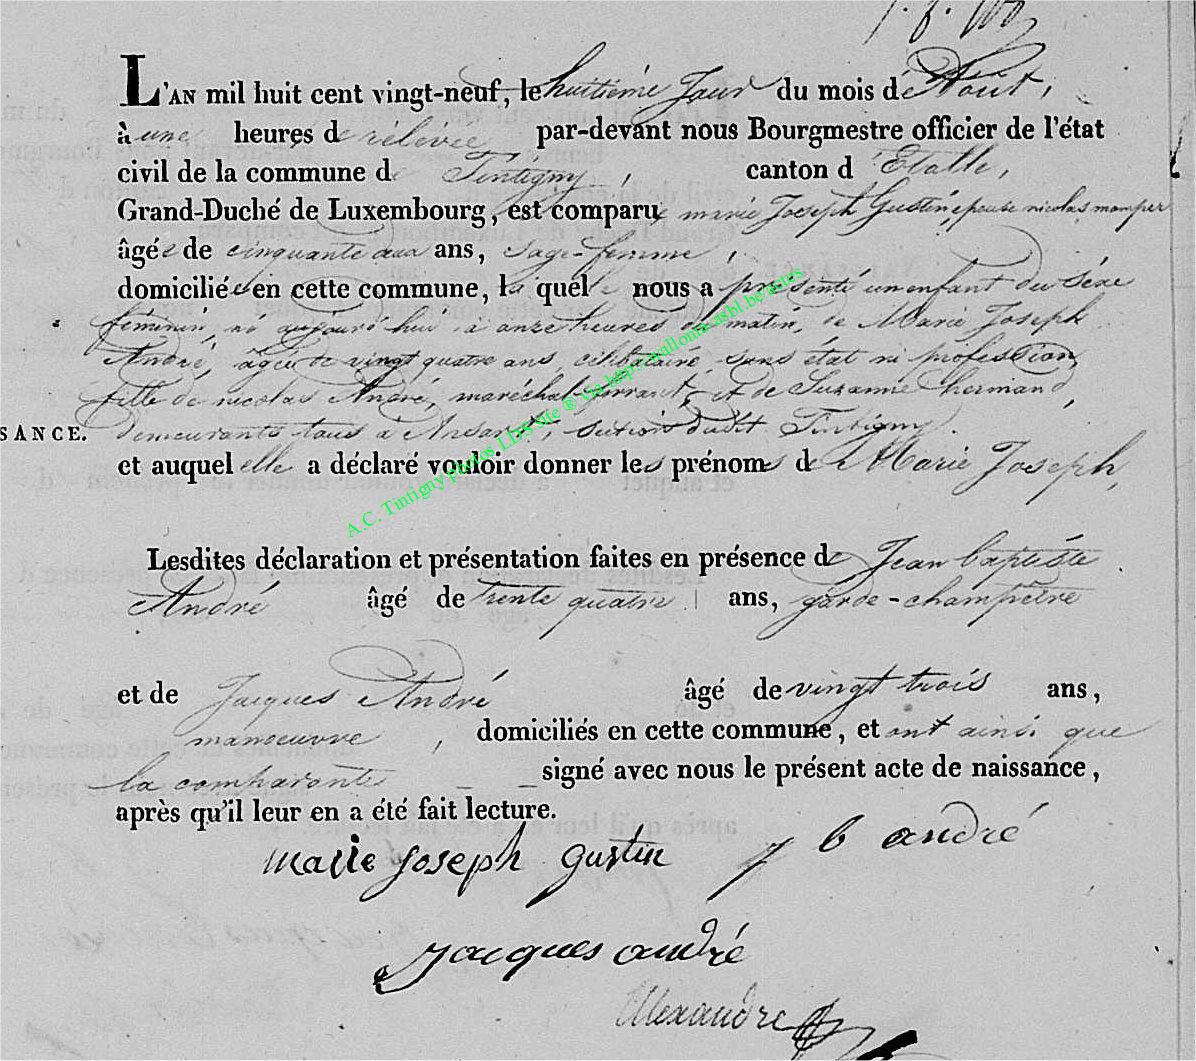 L'AN mil huit cent vingt-neuf, le huitième Jour du mois d'Aout,
à une heures de rélévée par-devant nous Bourgmestre officier de l'état
civil de la commune de Tintigny, canton d'Etalle,
Grand-Duché de Luxembourg, est comparue marie Joseph Gustin épouse nicolas momper
âgée de cinquante deux ans, sage-femme,
domiciliée en cette commune, la quelle nous a présenté un enfant du séxe
féminin, né aujourd'hui à onze heures du matin, de Marie Joseph
André, âgée de vingt quatre ans, célibataire, sans état ni profession,
fille de nicolas André, maréchal-ferrant, et de Suzanne hermand,
SANCE. demeurants tous à Ansart, section dudit Tintigny.
et auquel elle a déclaré vouloir donner les prénoms de Marie Joseph,
Lesdites déclaration et présentation faites en présence de Jean baptiste
André âgé de trente quatre ans, garde-champêtre
et de Jacques André âgé de vingt trois ans,
manoeuvre, domiciliés en cette commune, et ont ainsi que
la comparante signé avec nous le présent acte de naissance,
après qu'il leur en a été fait lecture.
marie joseph gustin J b andré
jacques andré
Alexandre
A.C. Tintigny Photos LDS Site ® via http:wallonia-asbl.be/actes